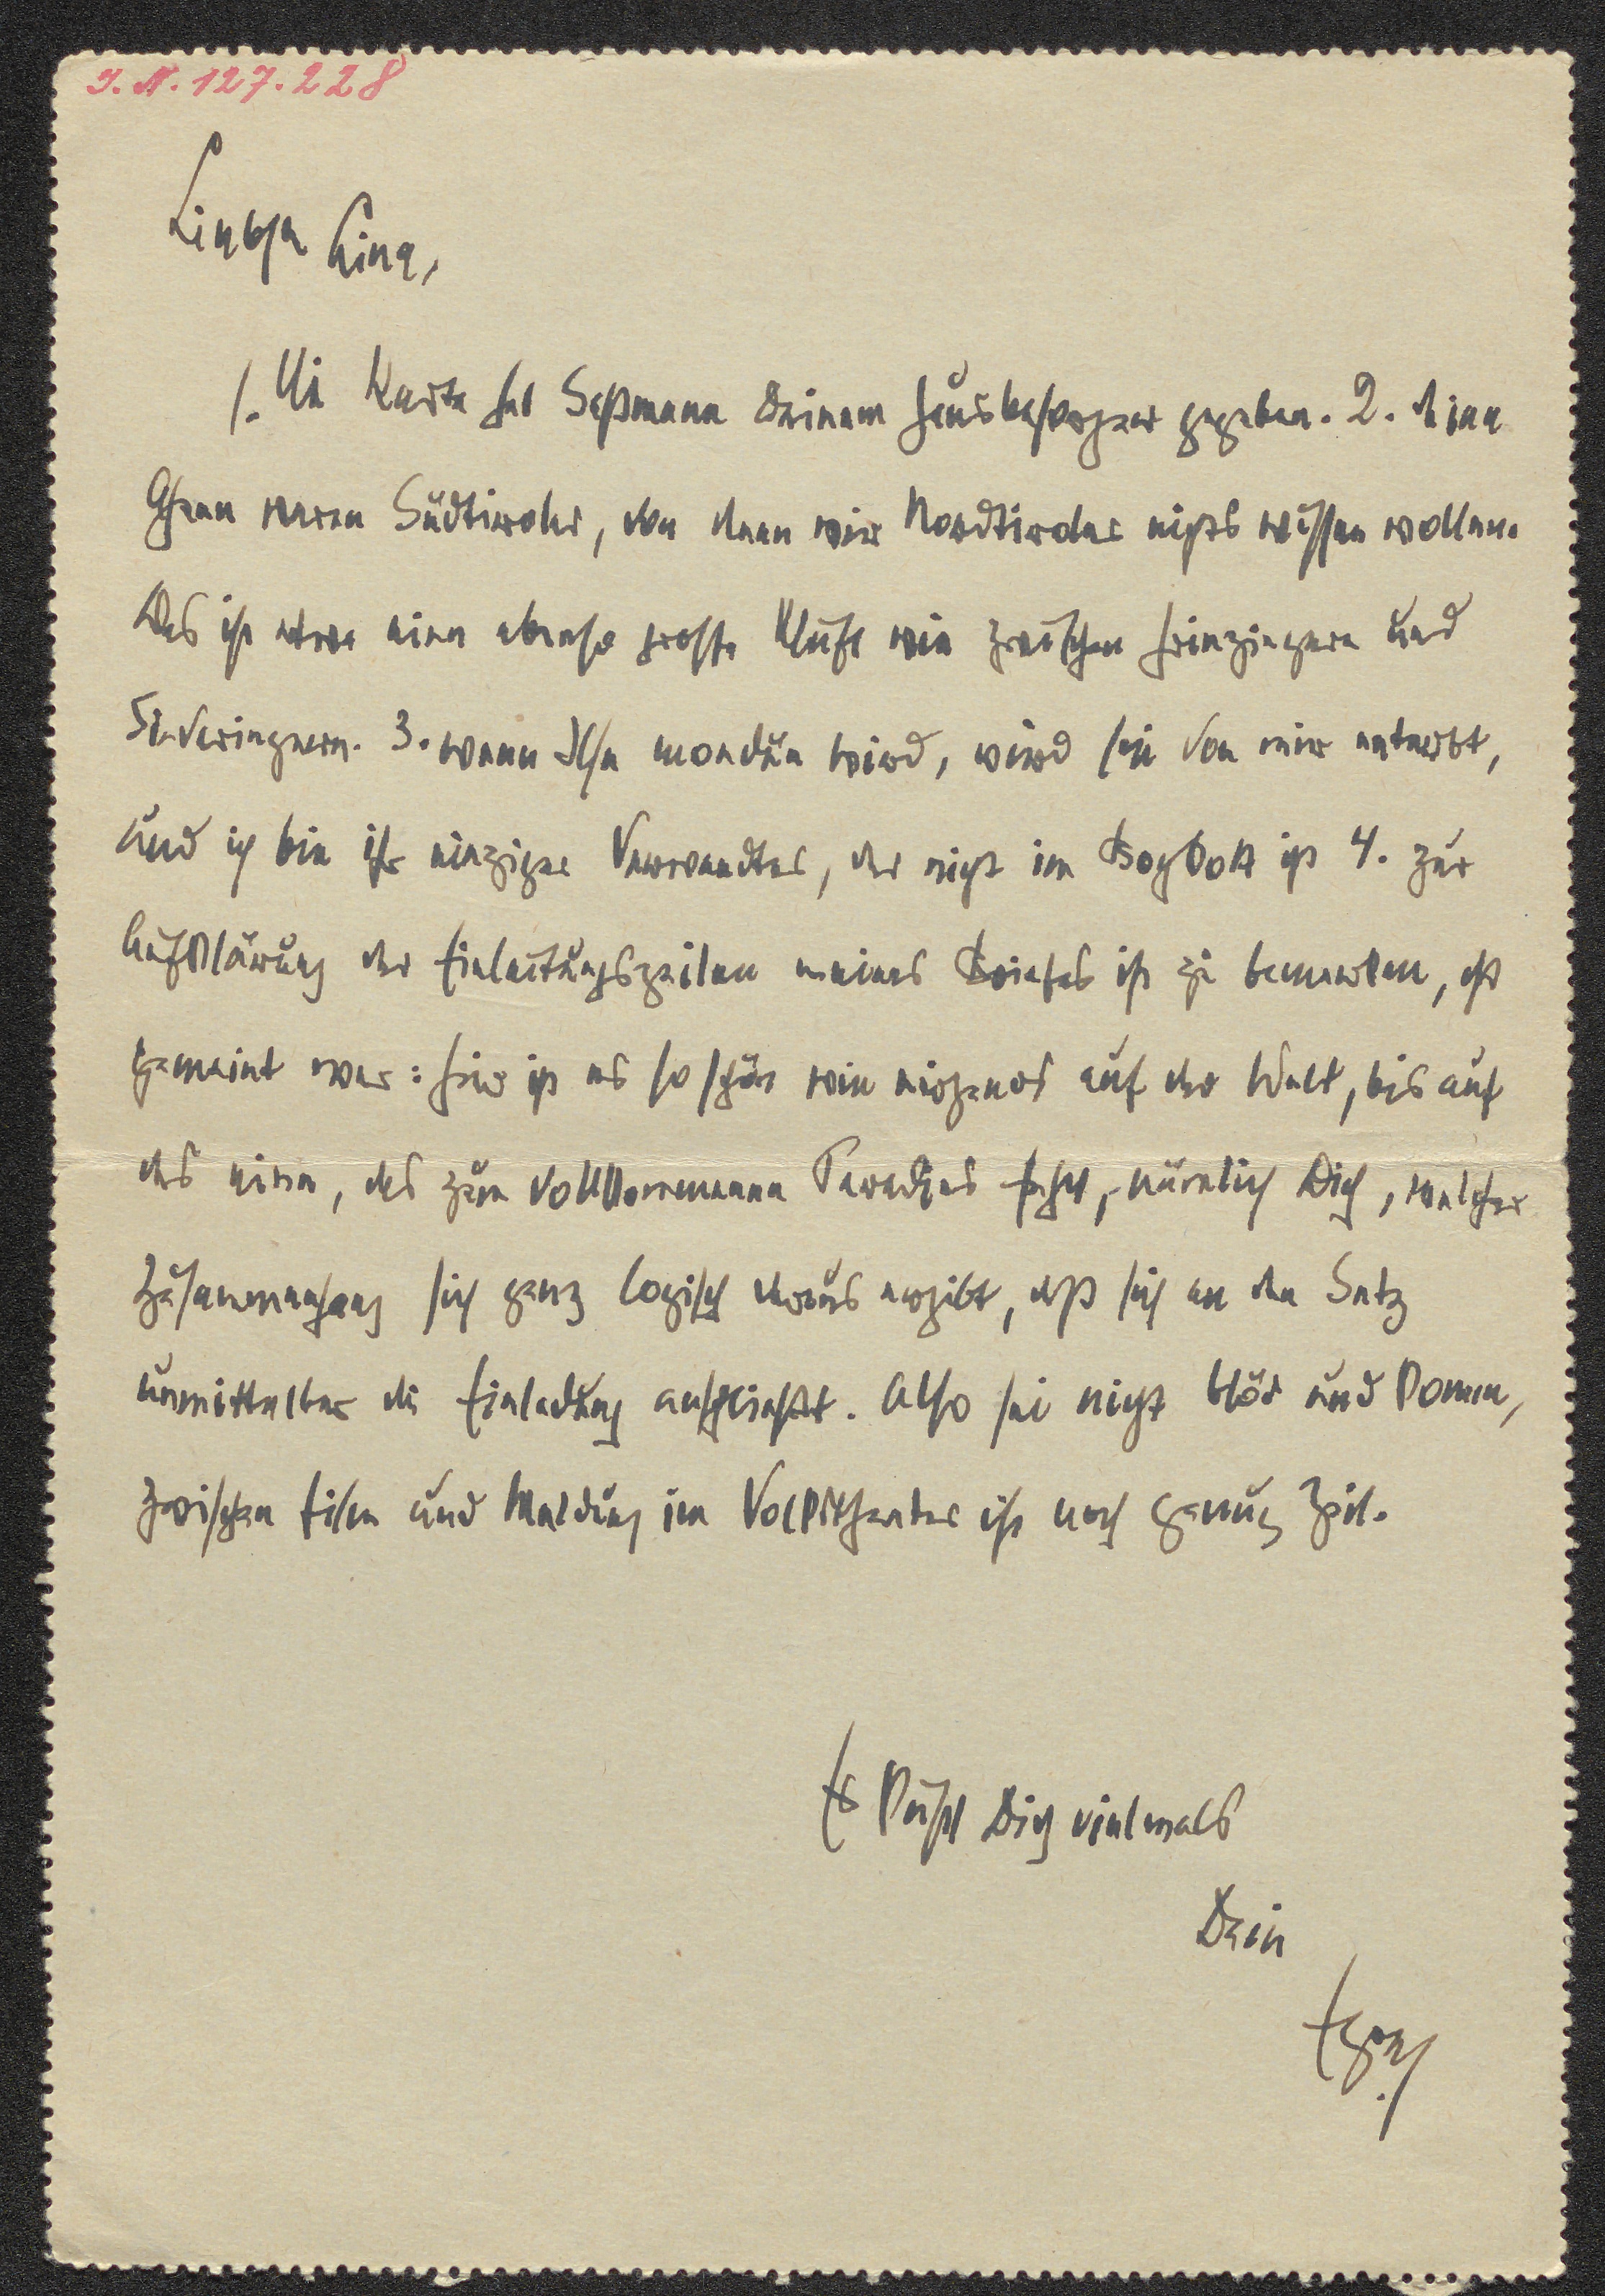 I. N. 127.228
Liebste Lina,
1. Die Karte hat Seßmann Deinem Hausbesorger gegeben. 2. Deine
Ahnen waren Südtiroler, von denen wir Nordtiroler nichts wissen wollen.
Das ist etwa eine ebenso große Kluft wie zwischen Grinzingern und
Sieveringern. 3. wenn Ilse mondän wird, wird sie von mir enterbt,
und ich bin ihr einziger Verwandter, der nicht im Boykott ist 4. zur
Aufklärung der Einleitungszeilen meines Briefes ist zu bemerken, daß
gemeint war: hier ist es so schön wie nirgends auf der Welt, bis auf
das eine, das zum vollkommenen Paradies fehlt, nämlich Dich, welcher
Zusammenhang sich ganz logisch daraus ergibt, daß sich an den Satz
unmittelbar die Einladung anschließt. Also sei nicht blöd und komm,
zwischen Film und Meldung im Volkstheater ist noch genug Zeit.
Es küßt Dich vielmals
Dein
Egon